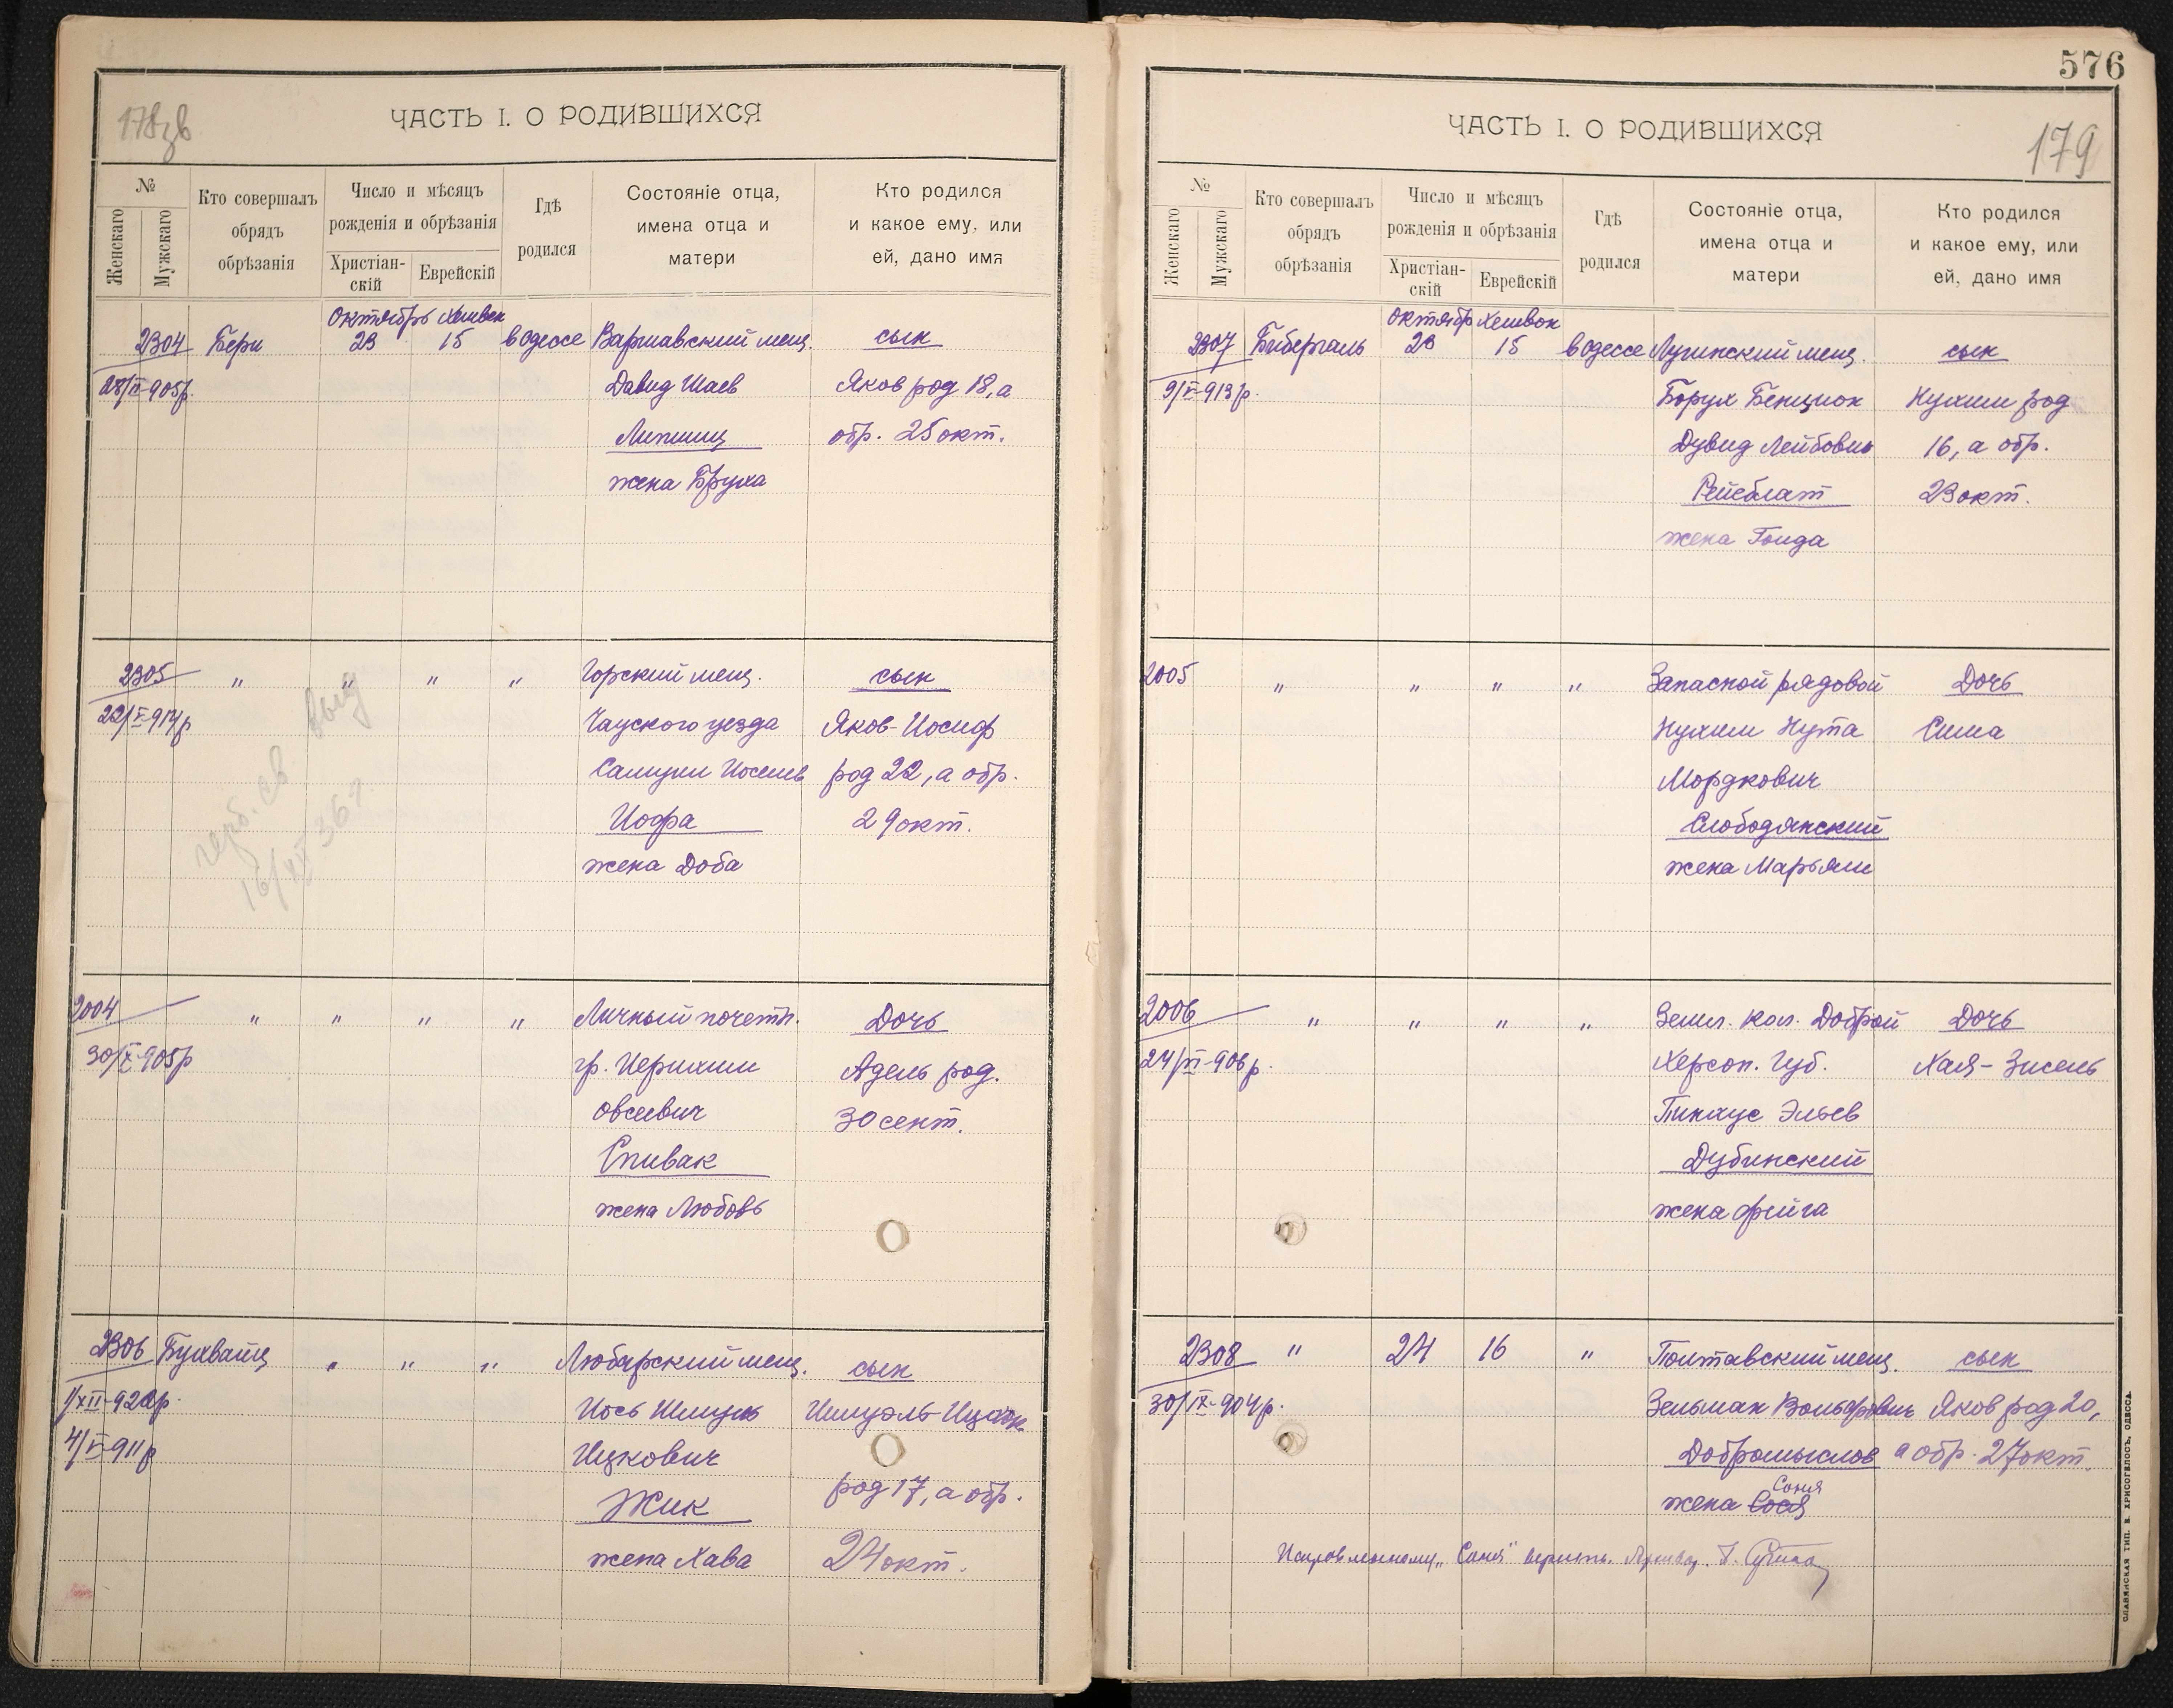 178зв
ЧАСТЬ I. О РОДИВШИХСЯ
№
Женскаго
Мужскаго
Кто совершалъ
обрядъ
обрѣзанія
Число и мѣсяцъ
рожденія и обрѣзанія
Христіан-
скій
Еврейскій
Гдѣ
родился
Состояніе отца,
имена отца и
матери
Кто родился
и какое ему, или
ей, дано имя
Октябрь Хешвон
2304 Бери 23 15 в Одессе Варшавский мещ. сын
Давид Шаев Яков род 18, а
Липшиц обр. 25 окт.
жена Бруха
2305 " " " " Горский мещ. сын
Чауского уезда Яков-Иосиф
Самуил Иосиев род 22, а обр.
Иофа 29 окт.
жена Доба
16/XII 36 г.
2004 " " " " Личный почетн. Дочь
30/X-905р
гр. Иерихим Адель род.
Овсеевич 30 сент.
Спивак
жена Любовь
2306 Бухвайц " " " Любарский мещ. сын
1/XII-920р.
Иось Шмуль Шмуэль-Ицхок
4/VI-911р
Ицкович род 17, а обр.
Жик 24 окт.
жена Хава
576
179
ЧАСТЬ I. О РОДИВШИХСЯ
№
Женскаго
Мужскаго
Кто совершалъ
обрядъ
обрѣзанія
Число и мѣсяцъ
рожденія и обрѣзанія
Христіан-
скій
Еврейскій
Гдѣ
родился
Состояніе отца,
имена отца и
матери
Кто родился
и какое ему, или
ей, дано имя
Октябр Хешвон
2307 Бибергаль 23 15 в Одессе Лугинский мещ. сын
Борух Бенцион Нухим род
Дувид Лейбович 16, а обр.
Рейсблат 23 окт.
жена Голда
2005 " " " " Запасной рядовой Дочь
Нухим Нута Сима
Мордкович
Слободянский
жена Марьям
2006 " " " " Земл. кол. Доброй Дочь
24/VI-906р.
Херсон. Губ. Хая-Зисель
Пинхус Эльев
Дубинский
жена Фейга
2308 " 24 16 " Полтавский мещ. сын
30/IX-904р.
Зельман Вольфович Яков род 20,
Добромыслов а обр. 27 окт.
Соня
жена Сося
"Соня"
СЛАВЯНСКАЯ ТИП. В. ХРИСОГЕЛОСЪ, ОДЕССА